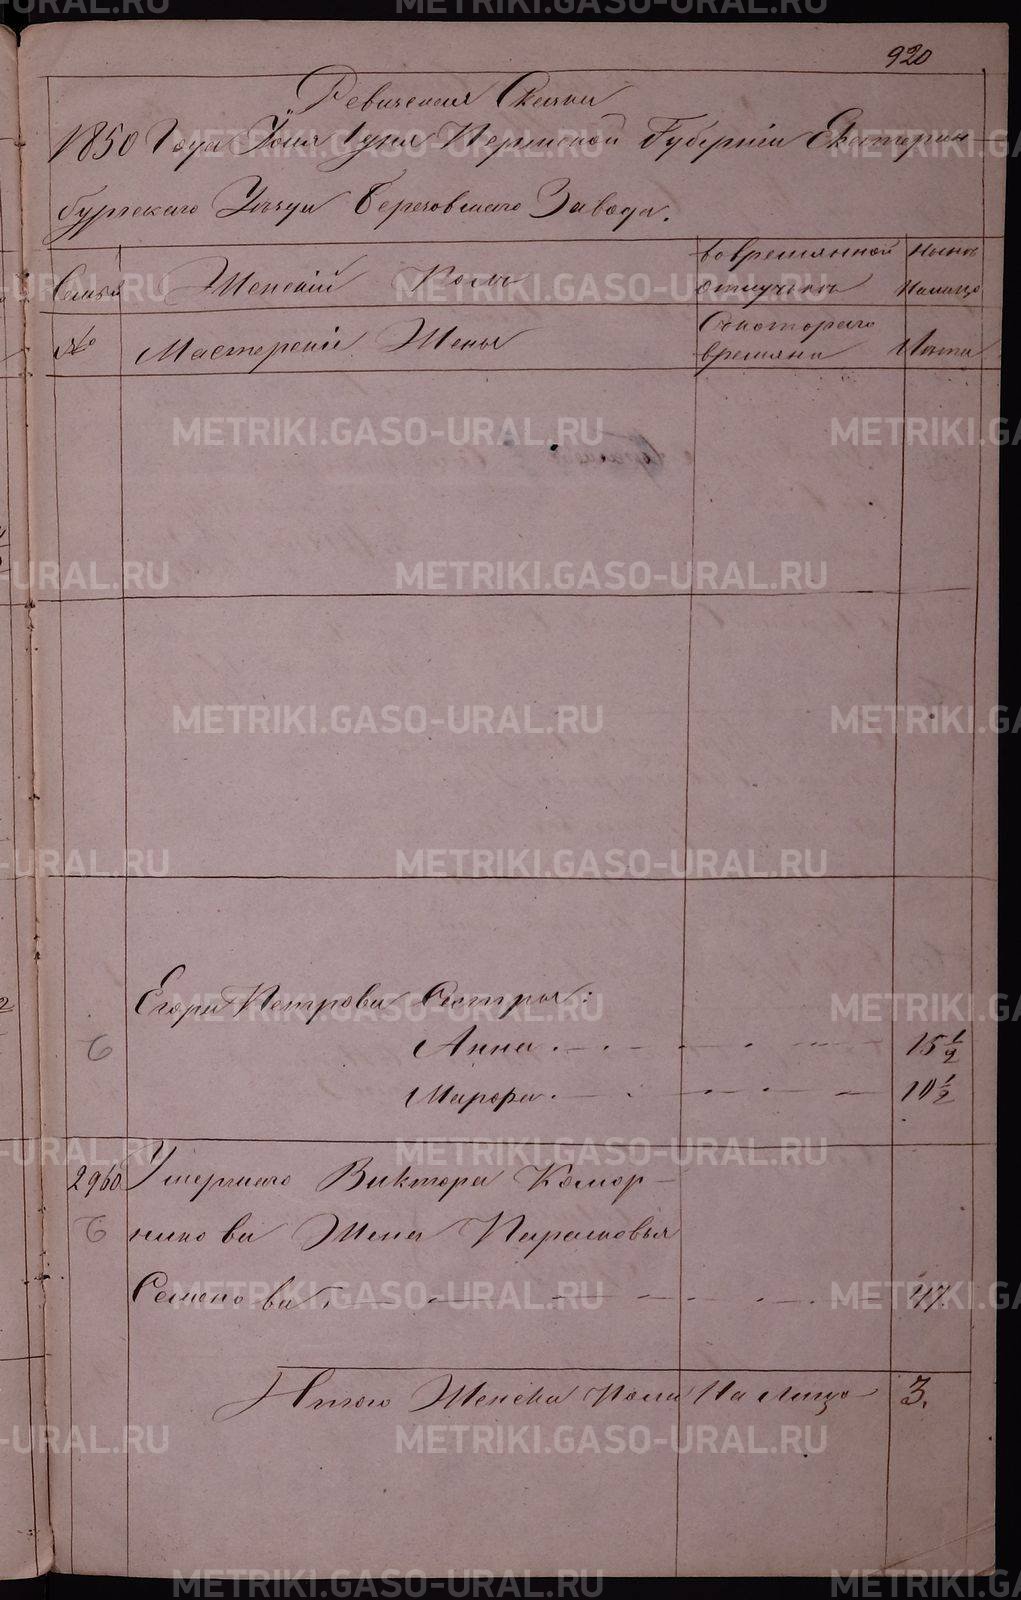 920
Ревизская Сказка
1850 Года Дня Пермской Губернiи Екатерин
бургскаго Уезда Березовскаго Завода.
Семья Женскiй Полъ во временной отлучькъ Ныне Налицо
№ Мастерскiи Жены Съ котораго времяни Лѣта
Егора Петрова Сестры:
6 Анна 15 1/2
Марфа 10 1/2
2960 Умершаго Виктора Комор-
6 никова Жена Парасковья
Семенова 47.
Итого Женска пола На лицо 3.
METRIKI.GASO-URAL.RU